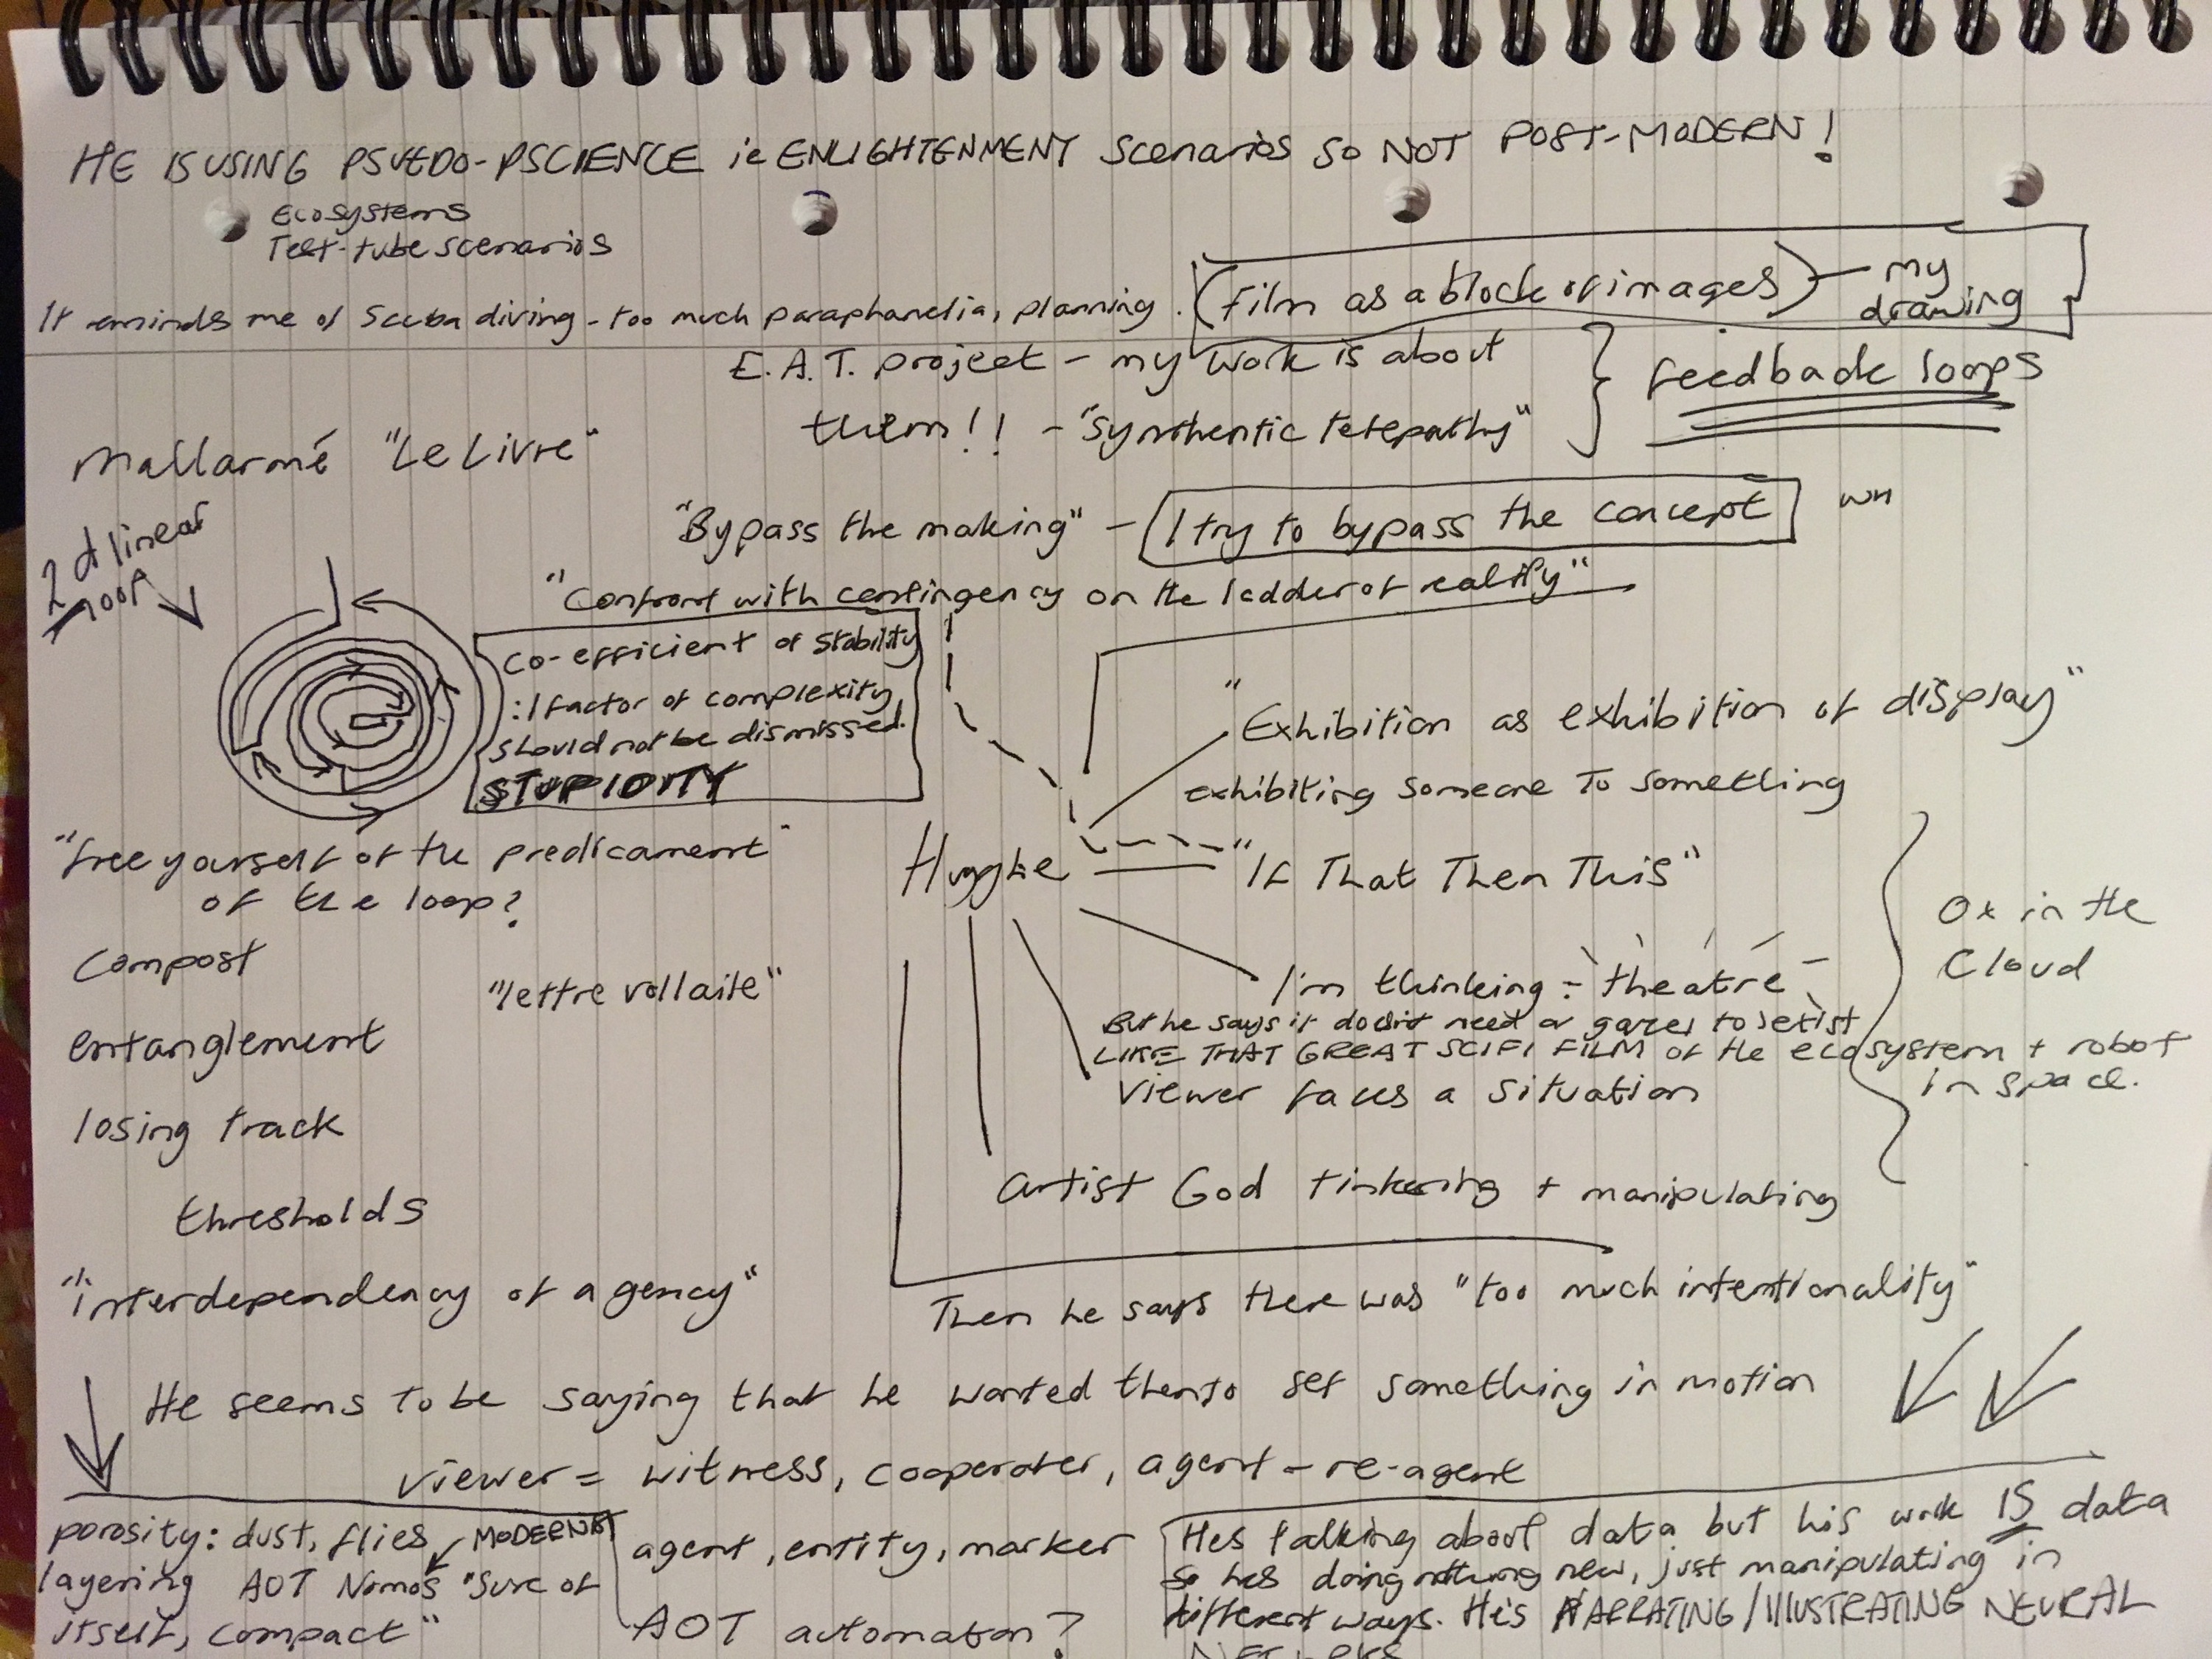 HE IS USING PSUEDO-PSCIENCE ie ENLIGHTENMENT Scenarios SO NOT POST-MODERN!
Ecosystems
Test-tube scenarios
It reminds me of Scuba diving - too much paraphanelia, planning. (Film as a block of images) - my drawing
E.A.T. project - my work is about
them!! - "Synthentic telepathy"
feedback loops
Mallarmé "Le Livre"
2d linear
loop
"Bypass the making" - I try to bypass the concept
"Confront with contingency on the ladder of reality"
co-efficient of stability
: 1 factor of complexity
should not be dismissed.
STUPIDITY
"Exhibition as exhibition of display"
exhibiting someone to something
"free yourself of the predicament"
of the loop?
Huyghe
"If That Then This"
Compost
"lettre vollaile"
entanglement
losing track
thresholds
"interdependency of agency"
I'm thinking = theatre
But he says it doesn't need a gaze to exist
LIKE THAT GREAT SCIFI FILM of the ecosystem + robot
in space.
Viewer faces a situation
Ox in the
Cloud
artist God tinkering + manipulating
Then he says there was "too much intentionality"
He seems to be saying that he wanted then to set something in motion
viewer = witness, cooperater, agent - re-agent
porosity: dust, flies MODERNIST
layering AOT Nomos "Sure of
itself, compact"
agent, entity, marker
AOT automaton?
Hes talking about data but his work IS data
so hes doing nothing new, just manipulating in
different ways. He's NARRATING/ILLUSTRATING NEURAL
NETWORKS